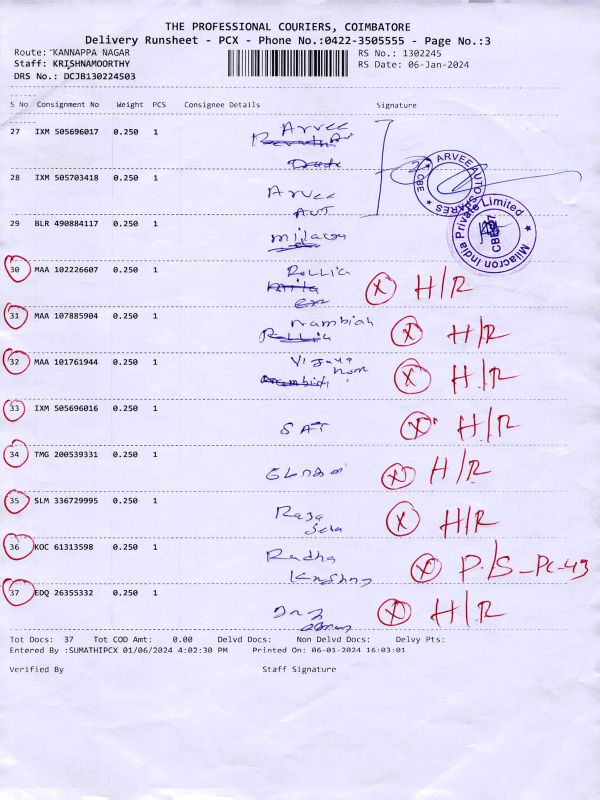 THE PROFESSIONAL COURIERS, COIMBATORE
Delivery Runsheet - PCX - Phone No.:0422-3505555 - Page No.:3
Route: KANNAPPA NAGAR
RS No.: 1302245
Staff: KRISHNAMOORTHY
RS Date: 06-Jan-2024
DRS No.: DCJB130224503
S No Consignment No Weight PCS Consignee Details Signature
27 IXM 505696017 0.250 1 Arvee
28 IXM 505703418 0.250 1 Arvee
AUT
ARVEE AUTO SPARES ★ CBE ★
29 BLR 490884117 0.250 1 milacron
Milacron India Private Limited ★
30 MAA 102226607 0.250 1 Rollia X H/R
31 MAA 107885904 0.250 1 Nambiah X H/R
32 MAA 101761944 0.250 1 X H/R
33 IXM 505696016 0.250 1 X H/R
34 TMG 200539331 0.250 1 X H/R
35 SLM 336729995 0.250 1 Raja X H/R
36 KOC 61313598 0.250 1 Radha X P/S-PC-49
37 EDQ 26355332 0.250 1 X H/R
Tot Docs: 37 Tot COD Amt: 0.00 Delvd Docs: Non Delvd Docs: Delvy Pts:
Entered By :SUMATHIPCX 01/06/2024 4:02:30 PM Printed On: 06-01-2024 16:03:01
Verified By Staff Signature